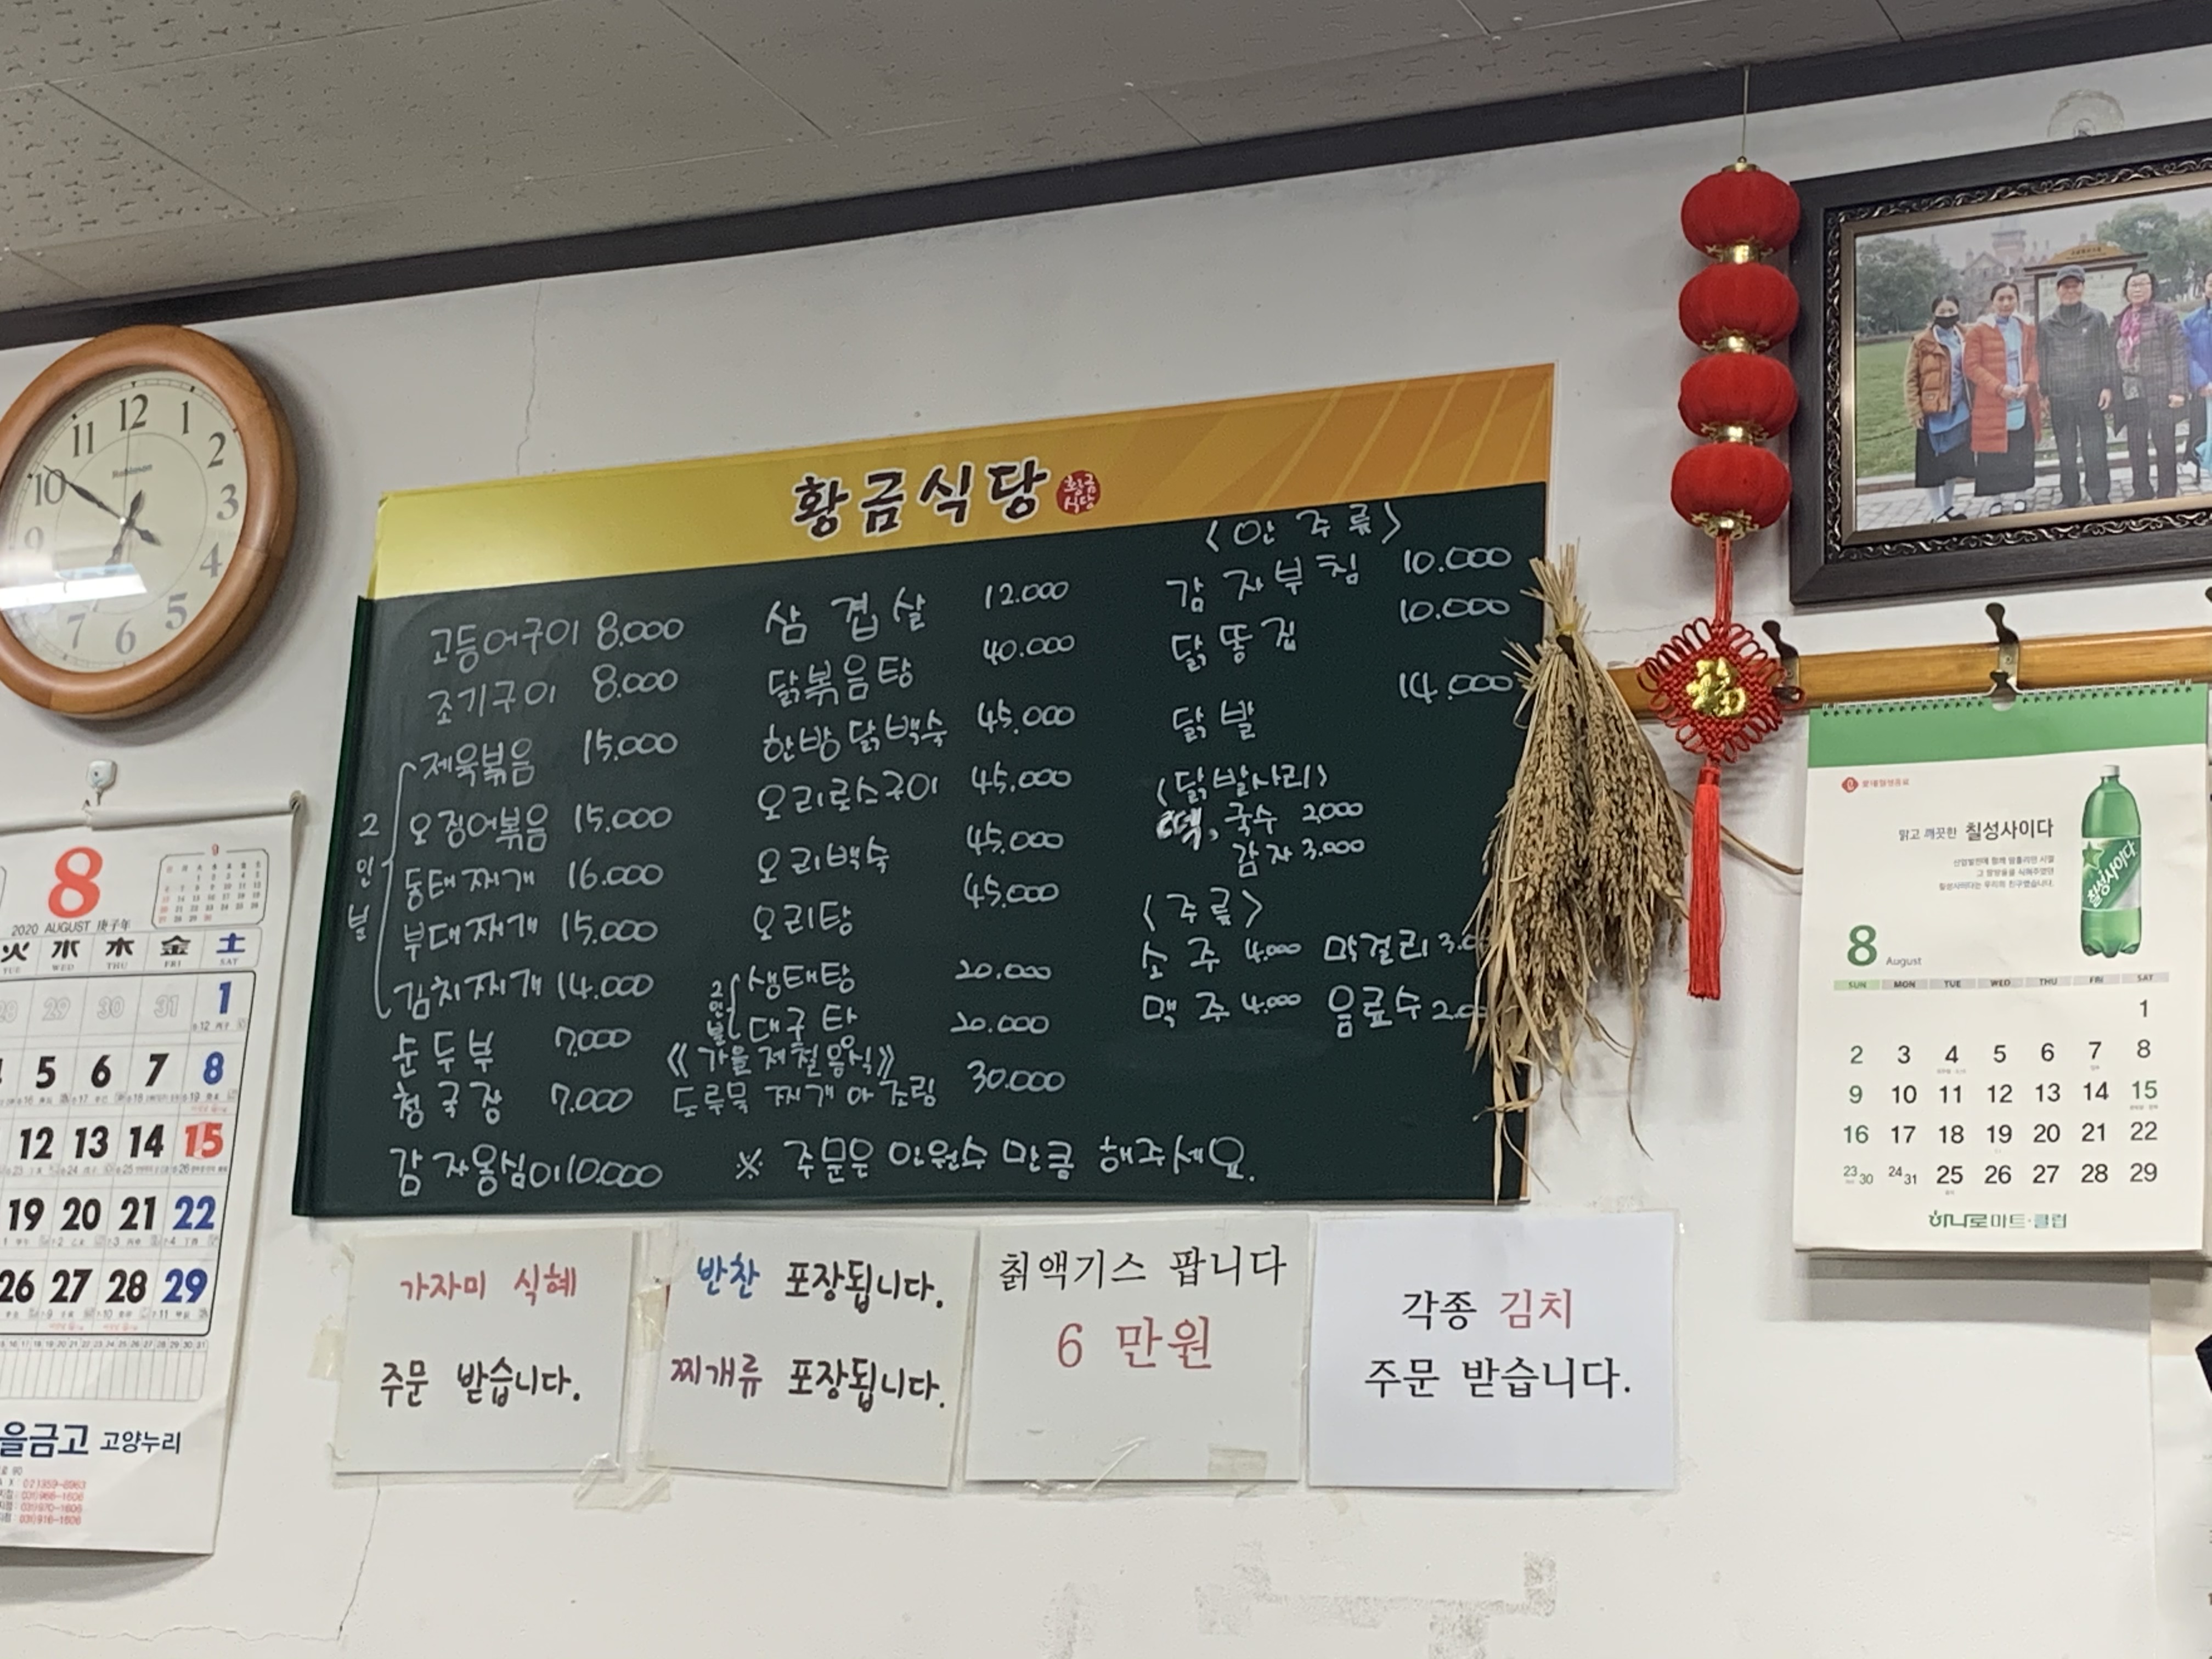 황금식당
황금
식당
고등어구이 8.000
조기구이 8.000
2인분
제육볶음 15.000
오징어볶음 15.000
동태찌개 16.000
부대찌개 15.000
김치찌개 14.000
순두부 7.000
청국장 7.000
감자옹심이 10.000
삼겹살 12.000
닭볶음탕 40.000
한방닭백숙 45.000
오리로스구이 45.000
오리백숙 45.000
오리탕 45.000
2인분
생태탕 20.000
대구탕 20.000
《가을제철음식》
도루묵 찌개 아 조림 30.000
※ 주문은 인원수 만큼 해주세요.
<안주류>
감자부침 10.000
닭똥집 10.000
닭발 14.000
<닭발사리>
떡, 국수 2000
감자 3.000
<주류>
소주 4.000 막걸리 3.0
맥주 4.000 음료수 2.0
가자미 식혜
주문 받습니다.
반찬 포장됩니다.
찌개류 포장됩니다.
칡액기스 팝니다
6 만원
각종 김치
주문 받습니다.
11 12 1
10 2
9 3
4
7 6 5
8
9
2020 AUGUST 庚子年
火 水 木 金 土
TUE WED THU FRI SAT
28 29 30 31 1
5 6 7 8
12 13 14 15
19 20 21 22
26 27 28 29
을금고 고양누리
福
롯데칠성음료
맑고 깨끗한 칠성사이다
칠성사이다
8 August
SUN MON TUE WED THU FRI SAT
1
2 3 4 5 6 7 8
9 10 11 12 13 14 15
16 17 18 19 20 21 22
23 30 24 31 25 26 27 28 29
하나로마트·클럽